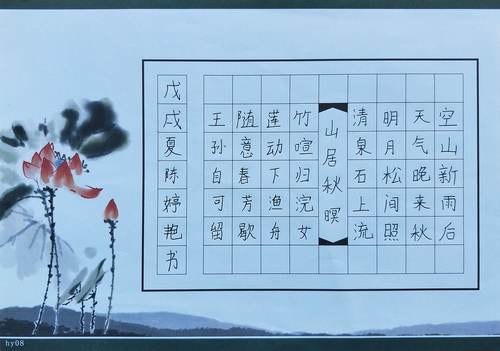 空山新雨后
天气晚来秋
明月松间照
清泉石上流
山居秋暝
竹喧归浣女
莲动下渔舟
随意春芳歇
王孙自可留
戊戌夏陈婷艳书
hy08